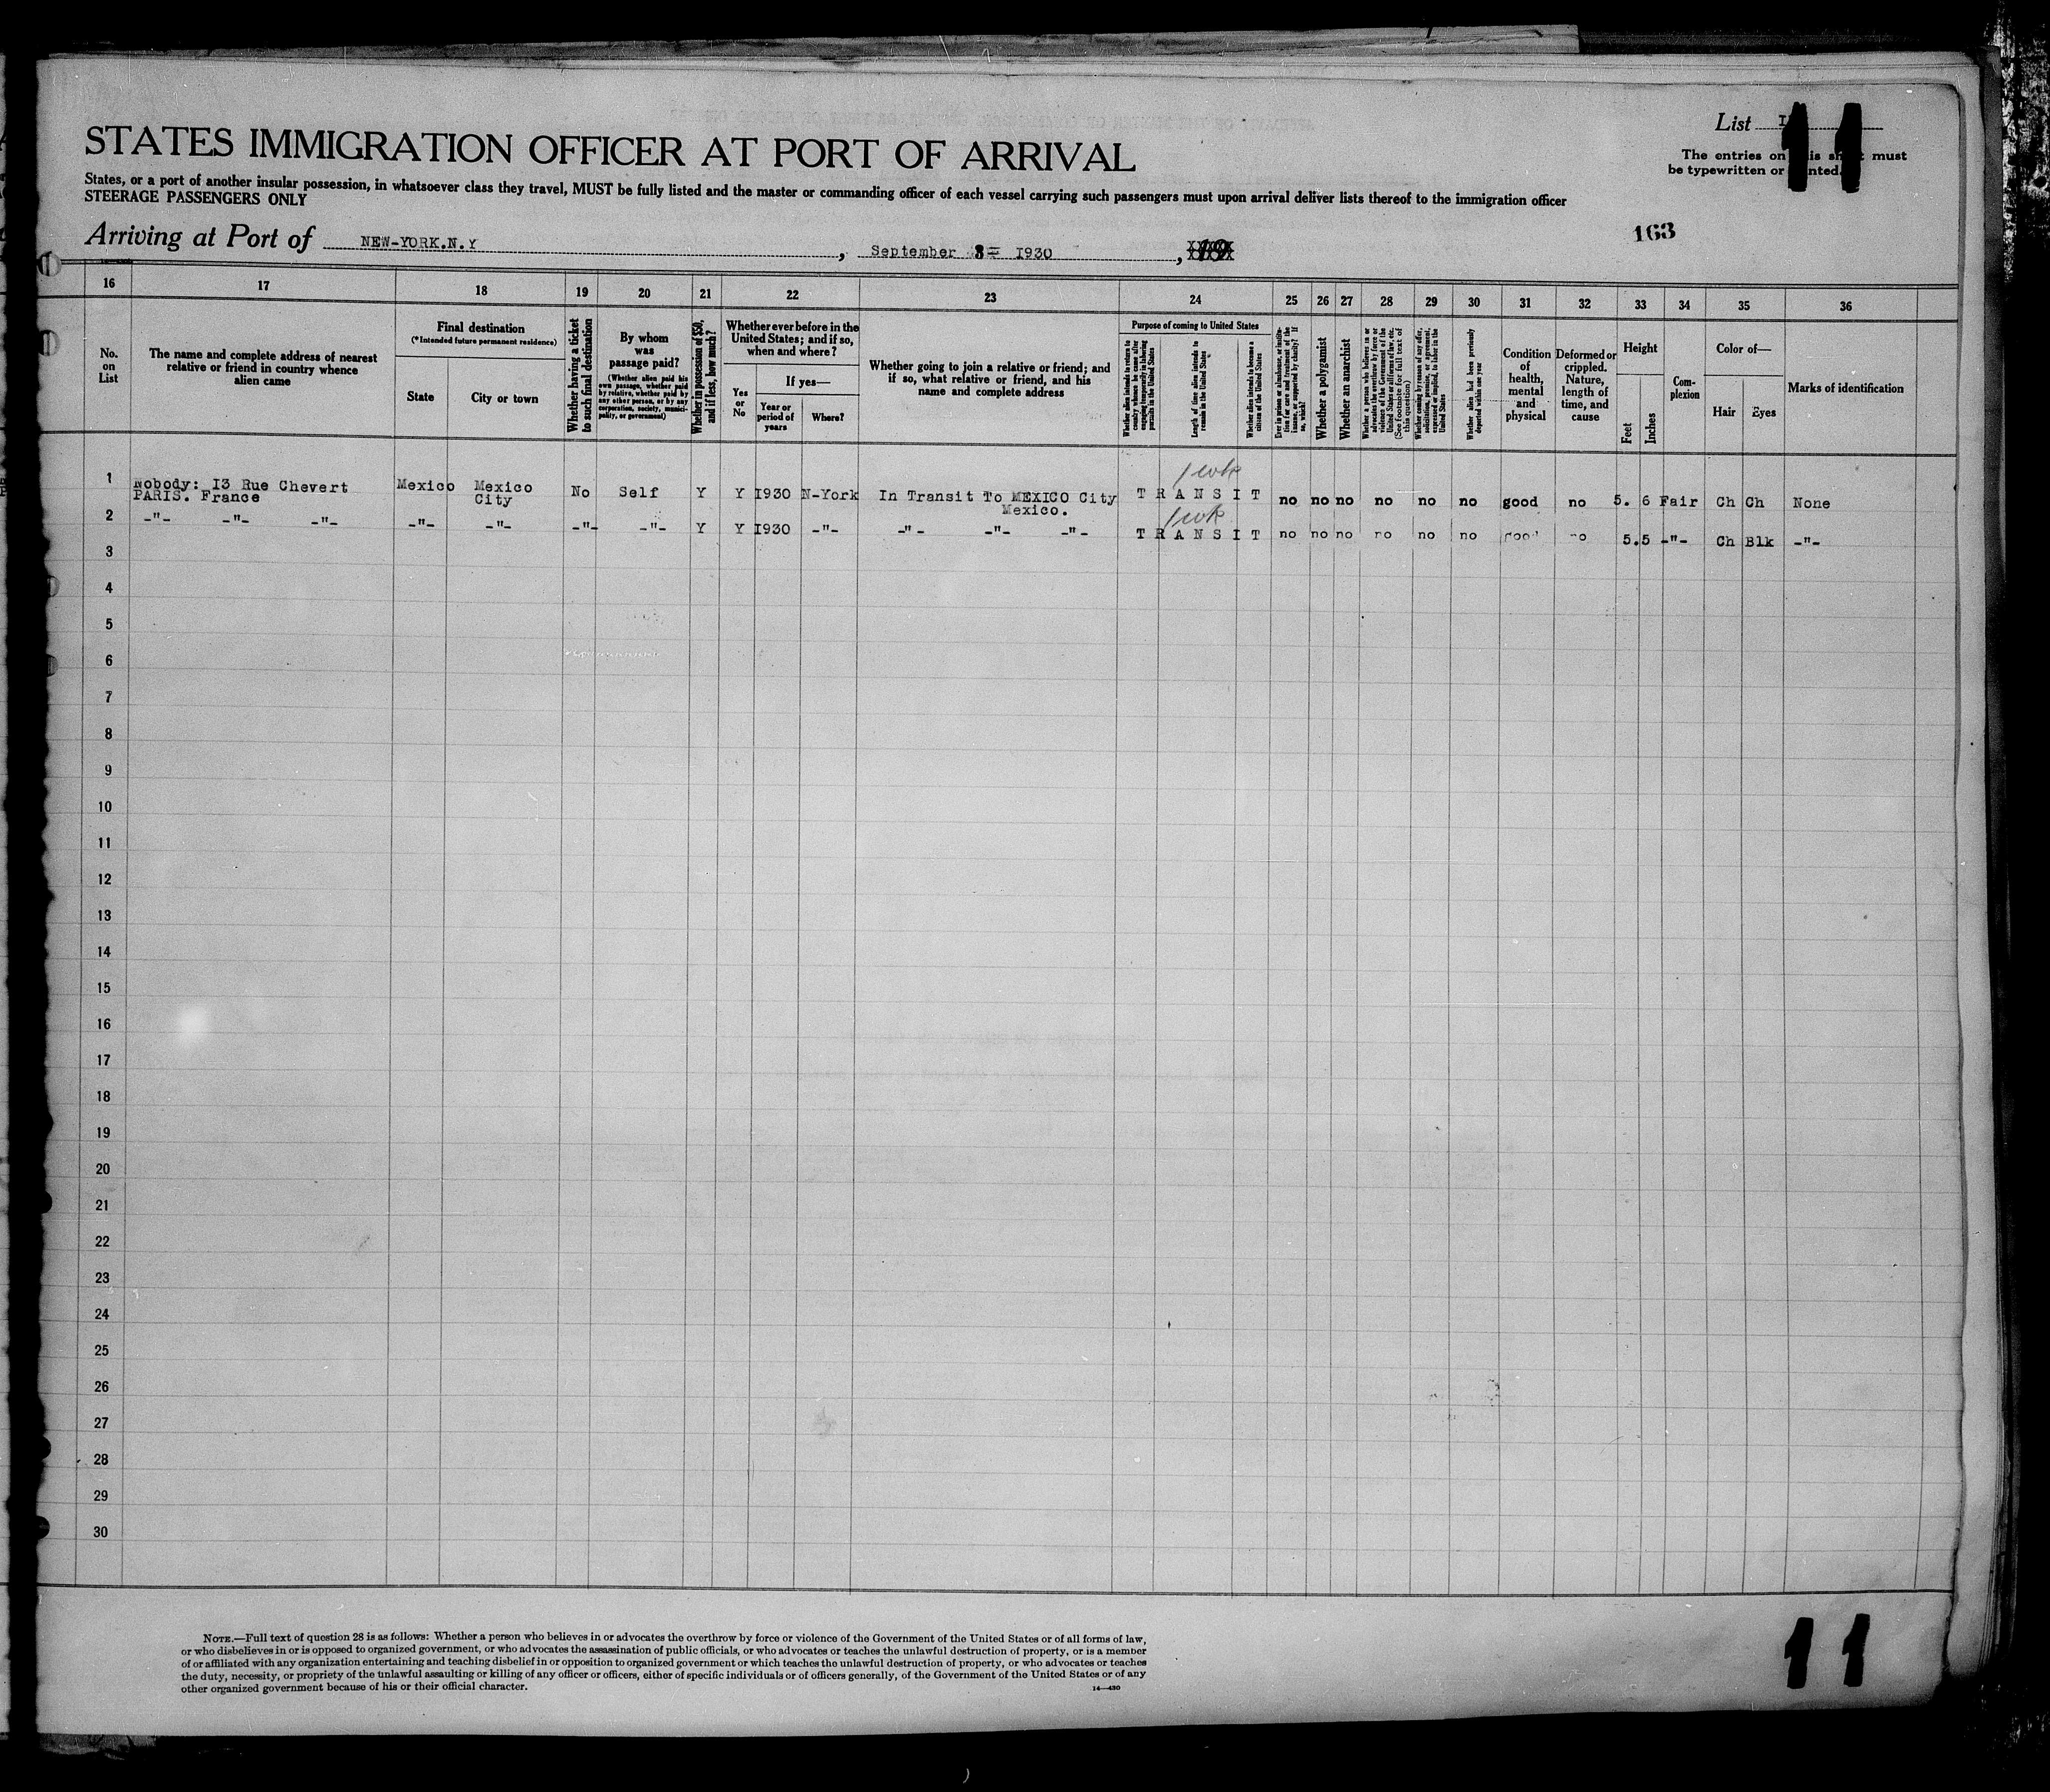 STATES IMMIGRATION OFFICER AT PORT OF ARRIVAL
List
11
The entries on this sheet must
be typewritten or printed.
States, or a port of another insular possession, in whatsoever class they travel, MUST be fully listed and the master or commanding officer of each vessel carrying such passengers must upon arrival deliver lists thereof to the immigration officer
STEERAGE PASSENGERS ONLY
Arriving at Port of NEW-YORK.N.Y , September 1930 , 19
163
16 17 18 19 20 21 22 23 24 25 26 27 28 29 30 31 32 33 34 35 36
No.
on
List
The name and complete address of nearest
relative or friend in country whence
alien came
Final destination
(*Intended future permanent residence)
State
City or town
Whether having a ticket
to such final destination
By whom
was
passage paid?
(Whether alien paid his
own passage, whether paid
by relative, whether paid by
any other person, or by any
corporation, society, munici-
pality, or government)
Whether in possession of $50,
and if less, how much?
Whether ever before in the
United States; and if so,
when and where?
Yes
or
No
If yes—
Year or
period of
years
Where?
Whether going to join a relative or friend; and
if so, what relative or friend, and his
name and complete address
Purpose of coming to United States
Whether alien intends to return to
country whence he came after
engaging temporarily in laboring
pursuits in the United States
Length of time alien intends to
remain in the United States
Whether alien intends to become a
citizen of the United States
Ever in prison or almshouse, or institu-
tion for care and treatment of the
insane, or supported by charity? If
so, which?
Whether a polygamist
Whether an anarchist
Whether a person who believes in or
advocates the overthrow by force or
violence of the Government of the
United States or all forms of law, etc.
(See footnote for full text of
this question)
Whether coming by reason of any offer,
solicitation, promise, or agreement,
expressed or implied, to labor in the
United States
Whether alien had been previously
deported within one year
Condition
of
health,
mental
and
physical
Deformed or
crippled.
Nature,
length of
time, and
cause
Height
Feet
Inches
Com-
plexion
Color of—
Hair
Eyes
Marks of identification
1 wk
1 Nobody: I3 Rue Chevert Mexico Mexico No Self Y Y I930 N-York In Transit To MEXICO City TRANSIT no no no no no no good no 5. 6 Fair Ch Ch None
PARIS. France City Mexico.
1 wk
2 -"- -"- -"- -"- -"- -"- -"- Y Y I930 -"- -"- -"- -"- TRANSIT no no no no no no good no 5.5 -"- Ch Blk -"-
3
4
5
6
7
8
9
10
11
12
13
14
15
16
17
18
19
20
21
22
23
24
25
26
27
28
29
30
NOTE.—Full text of question 28 is as follows: Whether a person who believes in or advocates the overthrow by force or violence of the Government of the United States or of all forms of law,
or who disbelieves in or is opposed to organized government, or who advocates the assassination of public officials, or who advocates or teaches the unlawful destruction of property, or is a member
of or affiliated with any organization entertaining and teaching disbelief in or opposition to organized government or which teaches the unlawful destruction of property, or who advocates or teaches
the duty, necessity, or propriety of the unlawful assaulting or killing of any officer or officers, either of specific individuals or of officers generally, of the Government of the United States or of any
other organized government because of his or their official character.
14—430
11